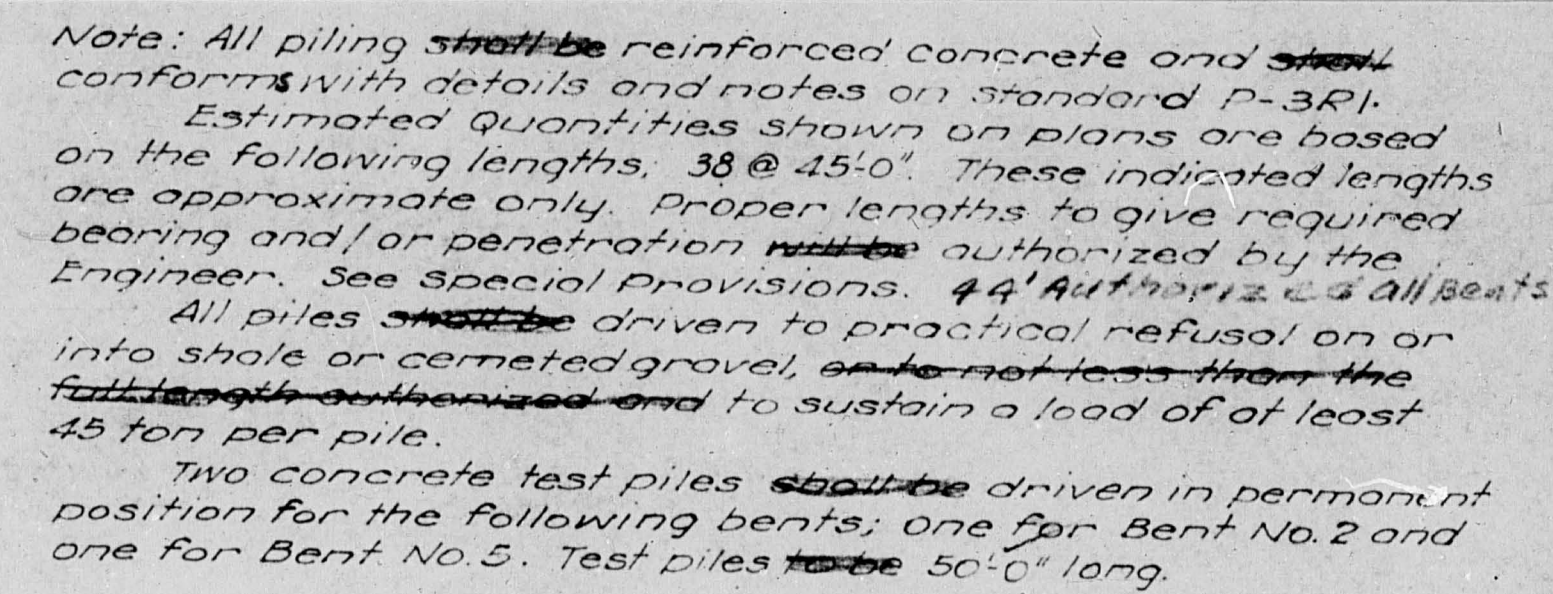 Note: All piling shall be reinforced concrete and shall
conforms with details and notes on standard P-3R1.
Estimated Quantities shown on plans are based
on the following lengths; 38 @ 45'-0". These indicated lengths
are approximate only. Proper lengths to give required
bearing and/or penetration will be authorized by the
Engineer. See Special Provisions. 44' Authorized all Bents
All piles shall be driven to practical refusal on or
into shale or cemeted gravel, or to not less than the
full length authorized and to sustain a load of at least
45 ton per pile.
Two concrete test piles shall be driven in permanent
position for the following bents; One for Bent No. 2 and
one for Bent No. 5. Test piles to be 50'-0" long.